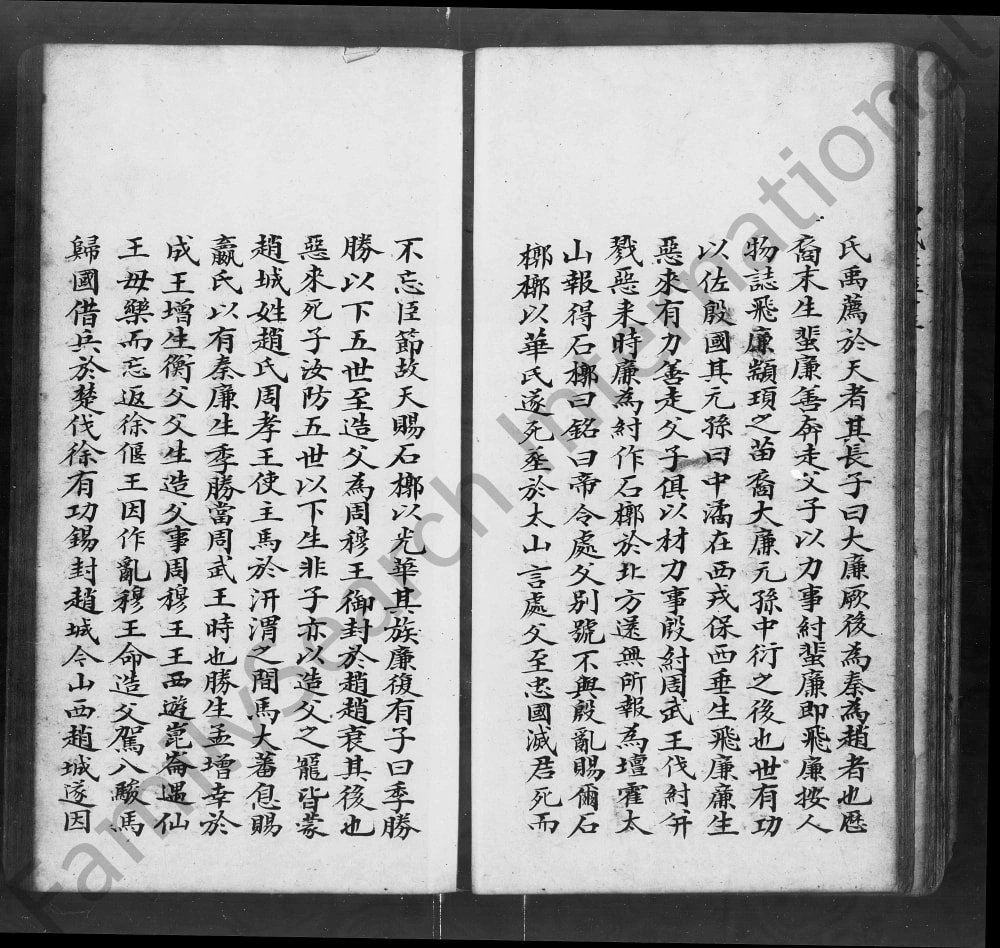 氏禹薦於天者其長子曰大廉厥後為秦為趙者也歷
裔末生蜚廉善奔走父子以力事紂蜚廉即飛廉按人
物誌飛廉顓頊之苗裔大廉元孫中衍之後也世有功
以佐殷國其元孫曰中潏在西戎保西垂生飛廉廉生
惡來有力善走父子俱以材力事殷紂周武王伐紂并
戮惡來時廉為紂作石槨於北方還無所報為壇霍太
山報得石槨曰銘曰帝令處父別號不與殷亂賜爾石
槨槨以華氏遂死塟於太山言處父至忠國滅君死而
不忘臣節故天賜石槨以光華其族廉復有子曰季勝
勝以下五世至造父為周穆王御封於趙趙衰其後也
惡來死子汝防五世以下生非子亦以造父之寵皆蒙
趙城姓趙氏周孝王使主馬於汧渭之間馬大蕃息賜
嬴氏以有秦廉生季勝當周武王時也勝生孟增幸於
成王增生衡父父生造父事周穆王王西遊崑崙遇仙
王母樂而忘返徐偃王因作亂穆王命造父駕八駿馬
歸國借兵於楚伐徐有功錫封趙城今山西趙城遂因
FamilySearch International